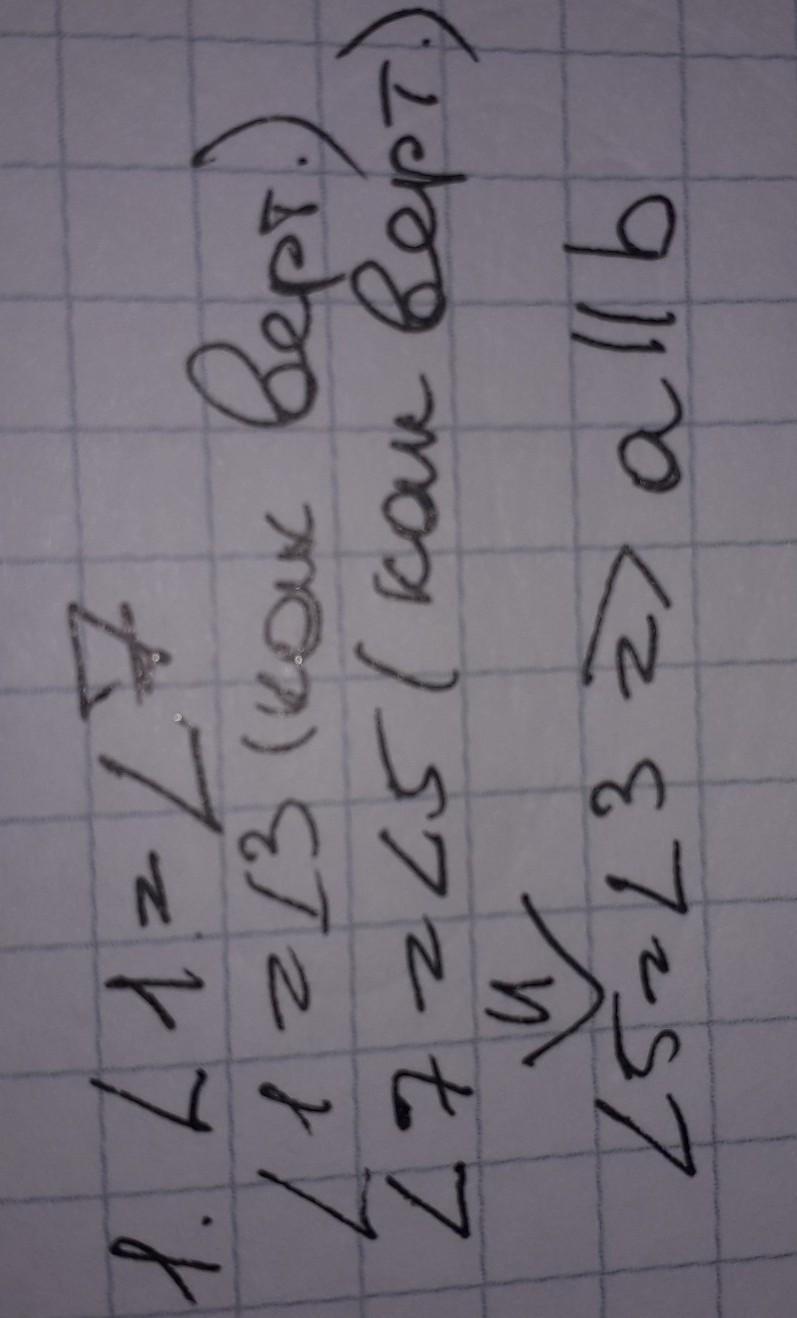 1. ∠1 = ∠7
∠1 = ∠3 (как верт.)
∠7 = ∠5 (как верт.)
⇓
∠5 = ∠3 => a || b